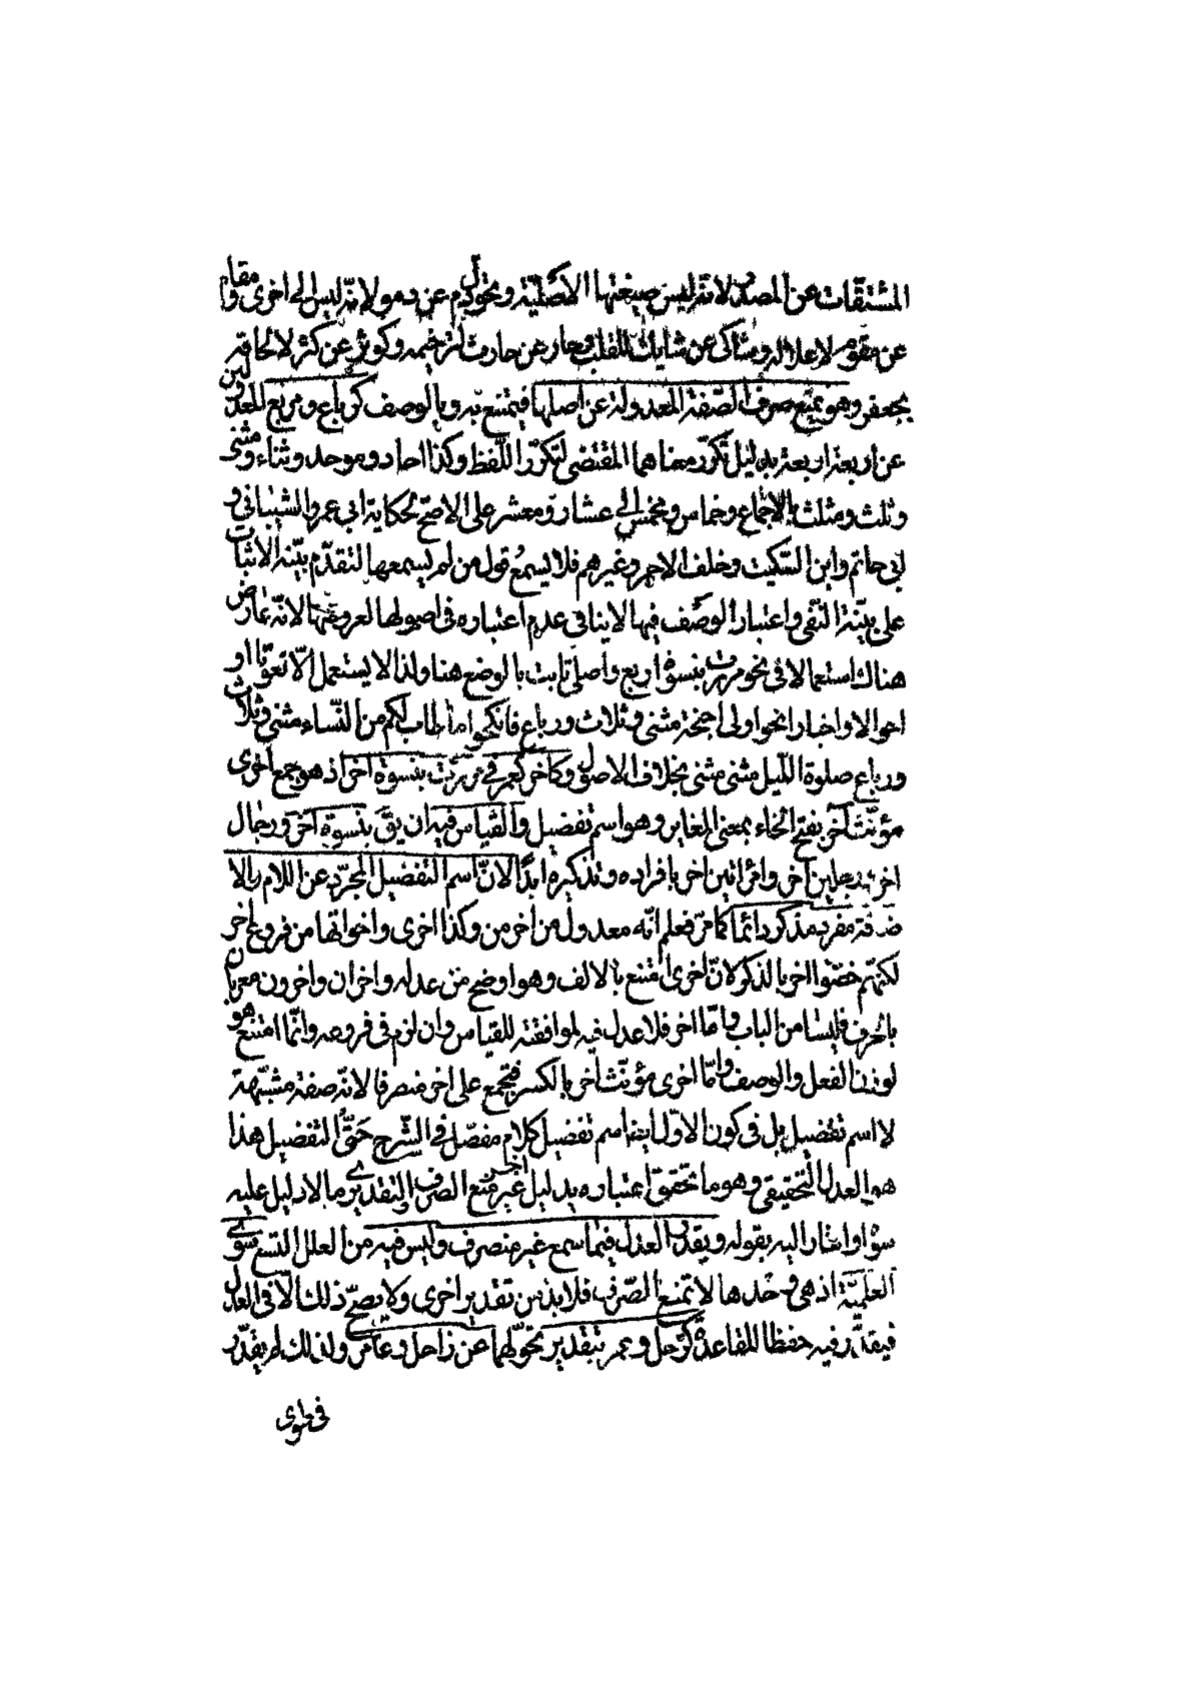 المشتقّات عن المصدر لانّه ليس صيغتها الاصليّة ونحو دم عن دمو لانّه ليس الى اخرى ومقام
عن مقوم لاعلاله وشاكى عن شايك للقلب وحار عن حارث لترخيمه وكوثر عن كثر لالحاقه
بجعفر وهو يمنع صرف الصّفة المعدولة عن اصلها فيمتنع به وبالوصف كرباع ومربع المعدولين
عن اربعة اربعة بدليل تكرّر معناهما المقتضى لتكرّر اللّفظ وكذا احاد وموحد وثناء ومثنى
وثلث ومثلث بالاجماع وخماس ومخمس الى عشار ومعشر على الاصحّ لحكاية ابى عمرو الشيبانى و
ابى حاتم وابن السّكيت وخلف الاحمر وغيرهم فلا يسمع قول من لم يسمعها لتقدّم بيّنة الاثبات
على بيّنة النّفى واعتبار الوصف فيها لا ينافى عدم اعتباره فى اصولها لعروضها لانّه عارض
هناك استعمالا فى نحو مررت بنسوة اربع واصلى ثابت بالوضع هنا ولذا لا يستعمل الّا نعوتا او
احوالا واخبارا نحو اولى اجنحة مثنى وثلاث ورباع فانكحوا ما طاب لكم من النّساء مثنى وثلاث
ورباع صلوة اللّيل مثنى مثنى بخلاف الاصول وكاخر كعمر فى مررت بنسوة اخر اذ هو جمع اخرى
مؤنّث آخر بفتح الخاء بمعنى المغاير وهو اسم تفضيل والقياس فيه ان يقّ بنسوة آخر ورجال
اخر ورجلين آخر وامرأتين اخر بافراده وتذكيره ابدًا لانّ اسم التفضيل المجرّد عن اللام والا
ضافة مفرد مذكر دائما كما مرّ فعلم انّه معدول من اخر من وكذا اخرى واخواتها من فروع اخر
لكنهم خصّوا اخر بالذكر لانّ اخرى امتنع بالالف وهو اوضح من عدله واخران واخرون معربان
بالحرف فليسا من الباب وامّا اخر فلا عدل فيه لموافقته للقياس وان لزم فى فروعه وانّما امتنع هو
لوزن الفعل والوصف وامّا اخرى مؤنّث آخر بالكسر فيجمع على اخر منصرفا لانّه صفة مشبّهة
لا اسم تفضيل بل فى كون الاوّل ايضا اسم تفضيل كلام مفصّل فى الشّرح حقّ التفضيل هذا
هو العدل التّحقيقى وهو ما تحقق اعتباره بدليل اخر غير منع الصّرف والتقديرى ما لا دليل عليه
سواه واشار اليه بقوله ويقدّر العدل فيما سمع غير منصرف وليس فيه من العلل التسع سوى
العلميّة اذ هى وحدها لا تمنع الصّرف فلا بدّ من تقدير اخرى ولا يصحّ ذلك الّا فى العدل
فيقدّر فيه حفظا للقاعدة كزحل وعمر بتقدير تحوّلهما عن زاحل وعامر ولذلك لم يقدّر
فى طوى